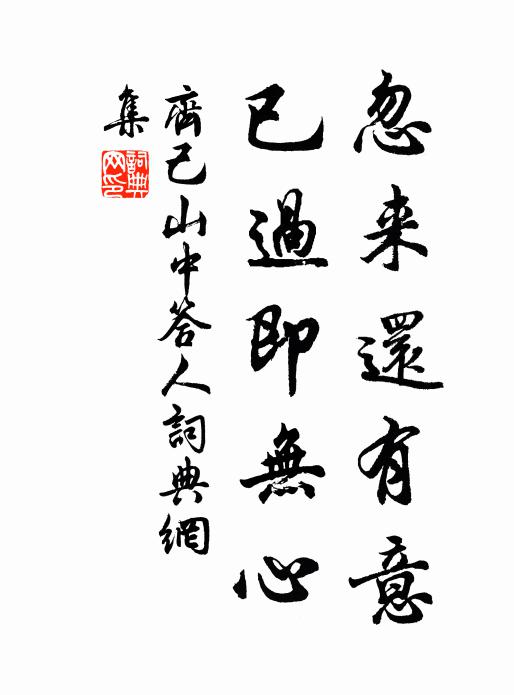 忽来還有意
已過即無心
齊己山中答人詞典網
集
詞典网印